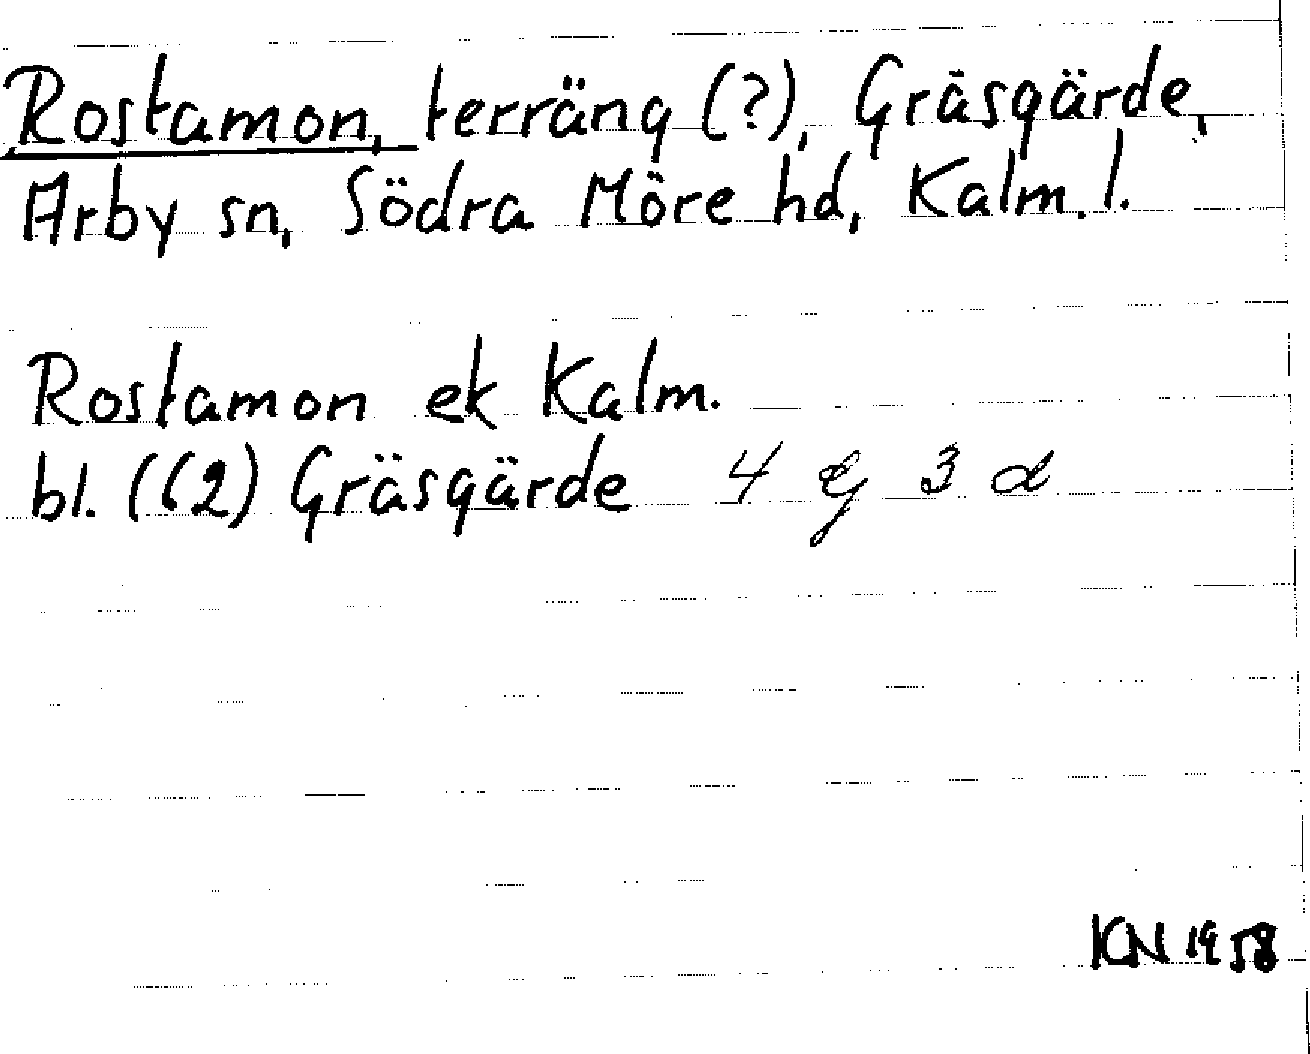 Rostamon, terräng (?), Gräsgärde,
Arby sn, Södra Möre hd, Kalm. l.
Rostamon ek Kalm.
bl. ((2) Gräsgärde 4 G 3 d
KN 1958